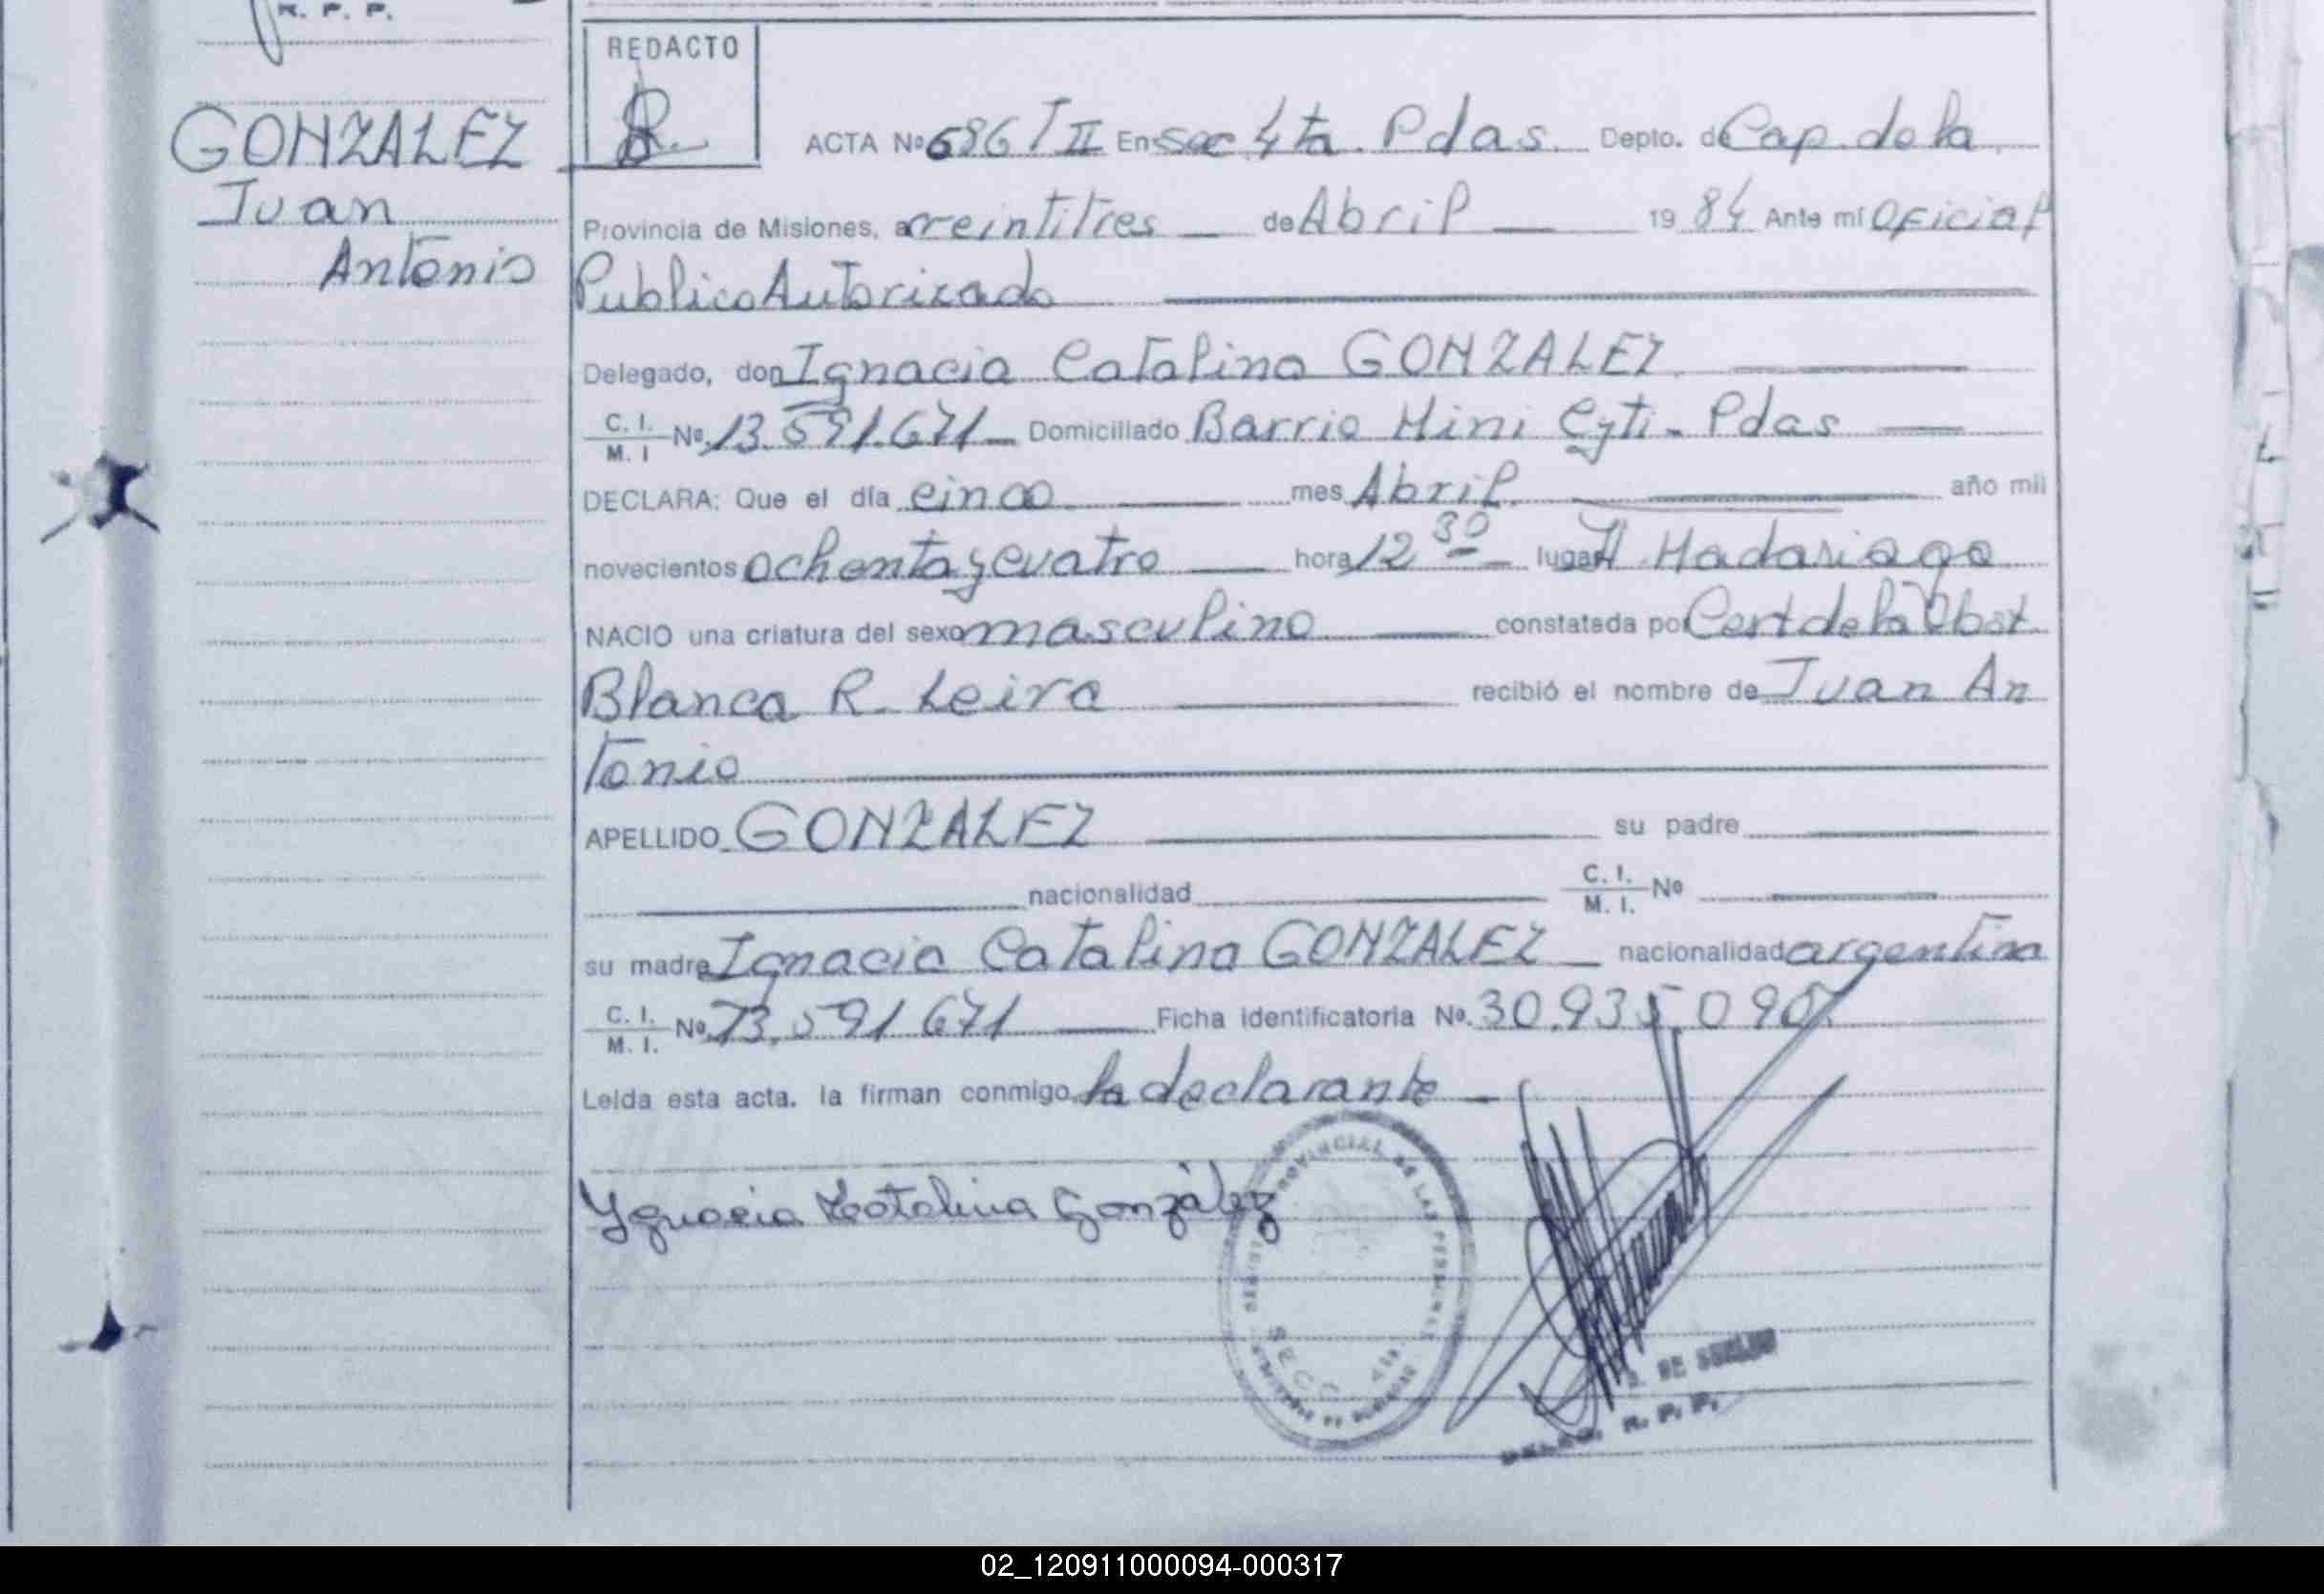 R. P. P.
REDACTO
GONZALEZ
Juan
Antonio
ACTA Nº 686 T II En Sec. 4ta. Pdas. Depto. de Cap. de la
Provincia de Misiones, a veintitres de Abril 19 84 Ante mí Oficial
Publico Autorizado
Delegado, don Ignacia Catalina GONZALEZ
C. I. M. I Nº 13.591.671 Domiciliado Barrio Mini Cyti - Pdas
DECLARA: Que el día cinco mes Abril año mil
novecientos ochenta y cuatro hora 12 30 lugar H. Madariaga
NACIO una criatura del sexo masculino constatada por Cert de la Obst.
Blanca R. Leiva recibió el nombre de Juan An
tonio
APELLIDO GONZALEZ su padre
nacionalidad C. I. M. I. Nº
su madre Ignacia Catalina GONZALEZ nacionalidad argentina
C. I. M. I. Nº 13.591.671 Ficha identificatoria Nº 30.935.090
Leída esta acta. la firman conmigo la declarante
Ygnacia Catalina González
PROVINCIAL DE LAS PERSONAS
SECC. 4ta.
R. P. P.
02_120911000094-000317